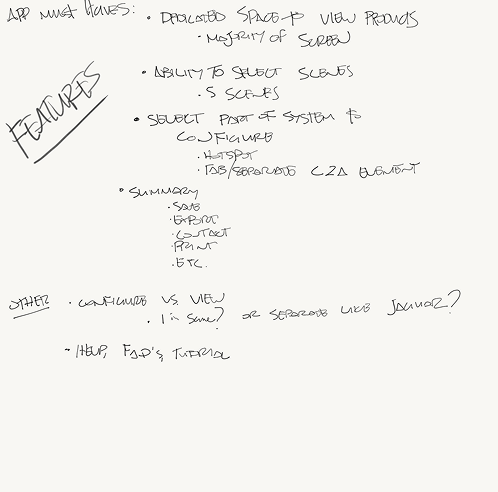 APP MUST HAVES:
• DEDICATED SPACE TO VIEW PRODUCTS
• MAJORITY OF SCREEN
FEATURES
• ABILITY TO SELECT SCENES
• 5 SCENES
• SELECT PART OF SYSTEM TO
CONFIGURE
• HOTSPOT
• TAB/SEPARATE ELEMENT
• SUMMARY
• SAVE
• EXPORT
• CONTACT
• PRINT
• ETC.
OTHER • CONFIGURE VS. VIEW
• 1 in same? OR SEPARATE LIKE JAGUAR?
- HELP, FAQ's, TUTORIAL